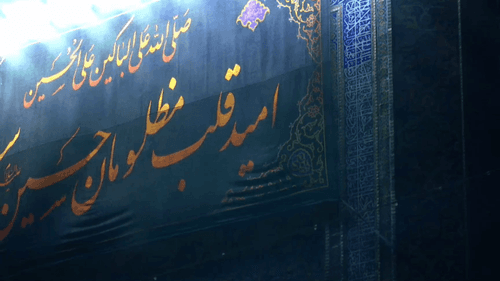 صَلَّی اللهُ عَلَی الْباکینَ عَلَی الْحُسَین
امید قلب مظلومان حسین